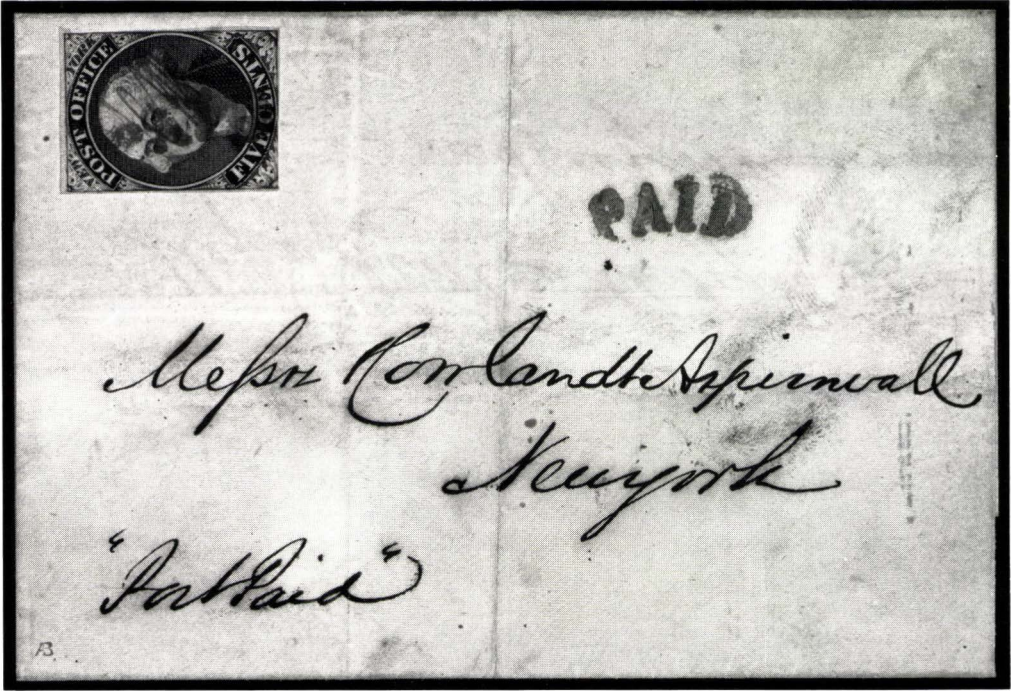 POST OFFICE
NEW YORK
FIVE CENTS
PAID
Messrs Howland & Aspinwall
New york
"Post Paid"